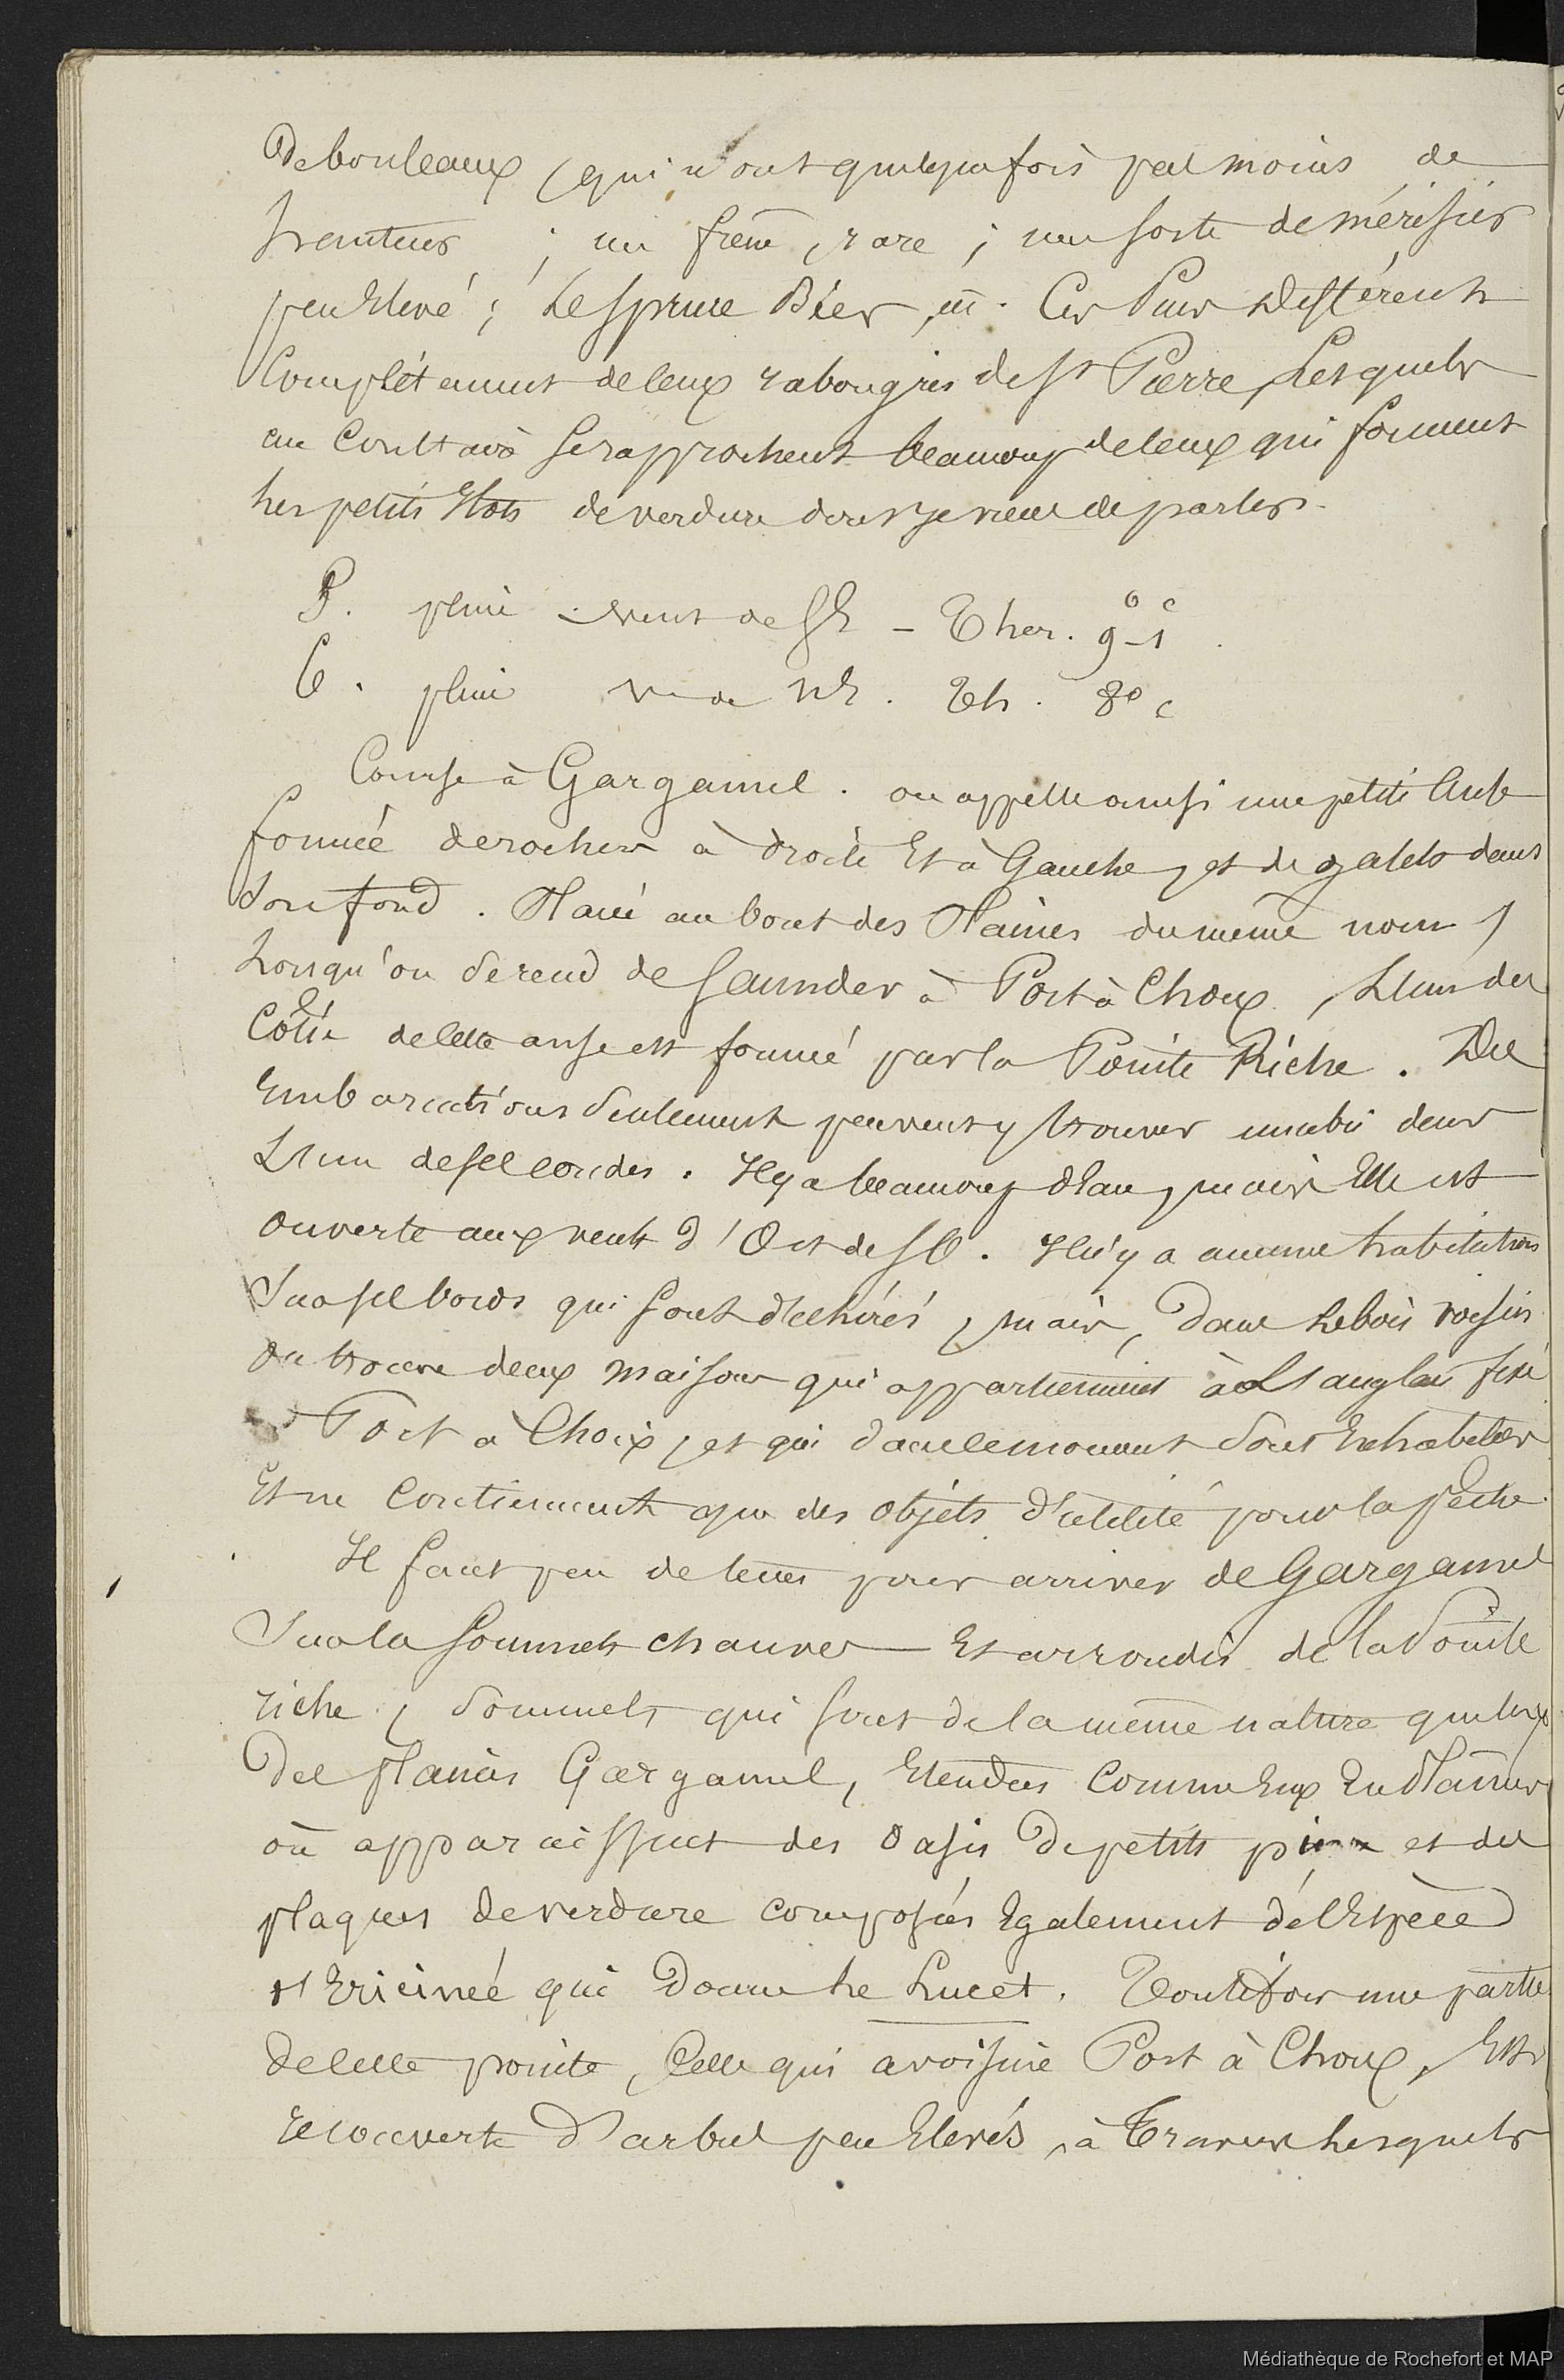 De bouleaux, qui n'ont quelquefois pas moins de
hauteur ; un frêne, rare ; une sorte de mérisier
peu Elevé ; Le spruce Bier, &. Ces Pins différents
Complétement de ceux rabougris de St Pierre, Lesquels
au Contraire se rapprochent beaucoup de ceux qui forment
les petits Ilots de verdure dont je viens de parler.
5. pluie - vent de SE - Ther. 9°-1c.
6. pluie v de NE. Th. 8° c
Course à Gargamel. on appelle ainsi une petite Anse
formée de rochers à droite Et à Gauche, et de galets dans
Son fond. Placée au bout des Plaines du même nom,
Lorsqu'on Se rend de Saunder à Port à Choux, L'un des
Côtés de cette anse est formé par la Pointe Riche. Des
Embarcations Seulement peuvent y trouver un abri dans
L'un de ses coudes. Il y a beaucoup d'eau, mais Elle est
ouverte aux vents d'O et de SO. Il n'y a aucune habitation
Sur ses bords qui sont déchirés, mais, Dans le bois voisin
On trouve deux maisons qui appartiennent à L'anglais fixé
à Port à Choix, et qui dans ce moment Sont Inhabitées
Et ne Contiennent que des objets d'utilité pour la pêche.
Il faut peu de tems pour arriver de Gargamel
Sur la Sommets chauves Et arrondis de la Pointe
riche, Sommets qui sont de la même nature que ceux
Des plaines Gargamel, Etendues Comme Eux En Plaines
où apparaissent des oasis De petits pins et des
plaques de verdure composées Egalement de l'Espèce
d'Ericinée qui Donne le Lucet. Toutefois une partie
De cette pointe, Celle qui avoisine Port à Choux, Est
recouverte D'arbres peu Elevés, à Travers lesquels
Médiathèque de Rochefort et MAP